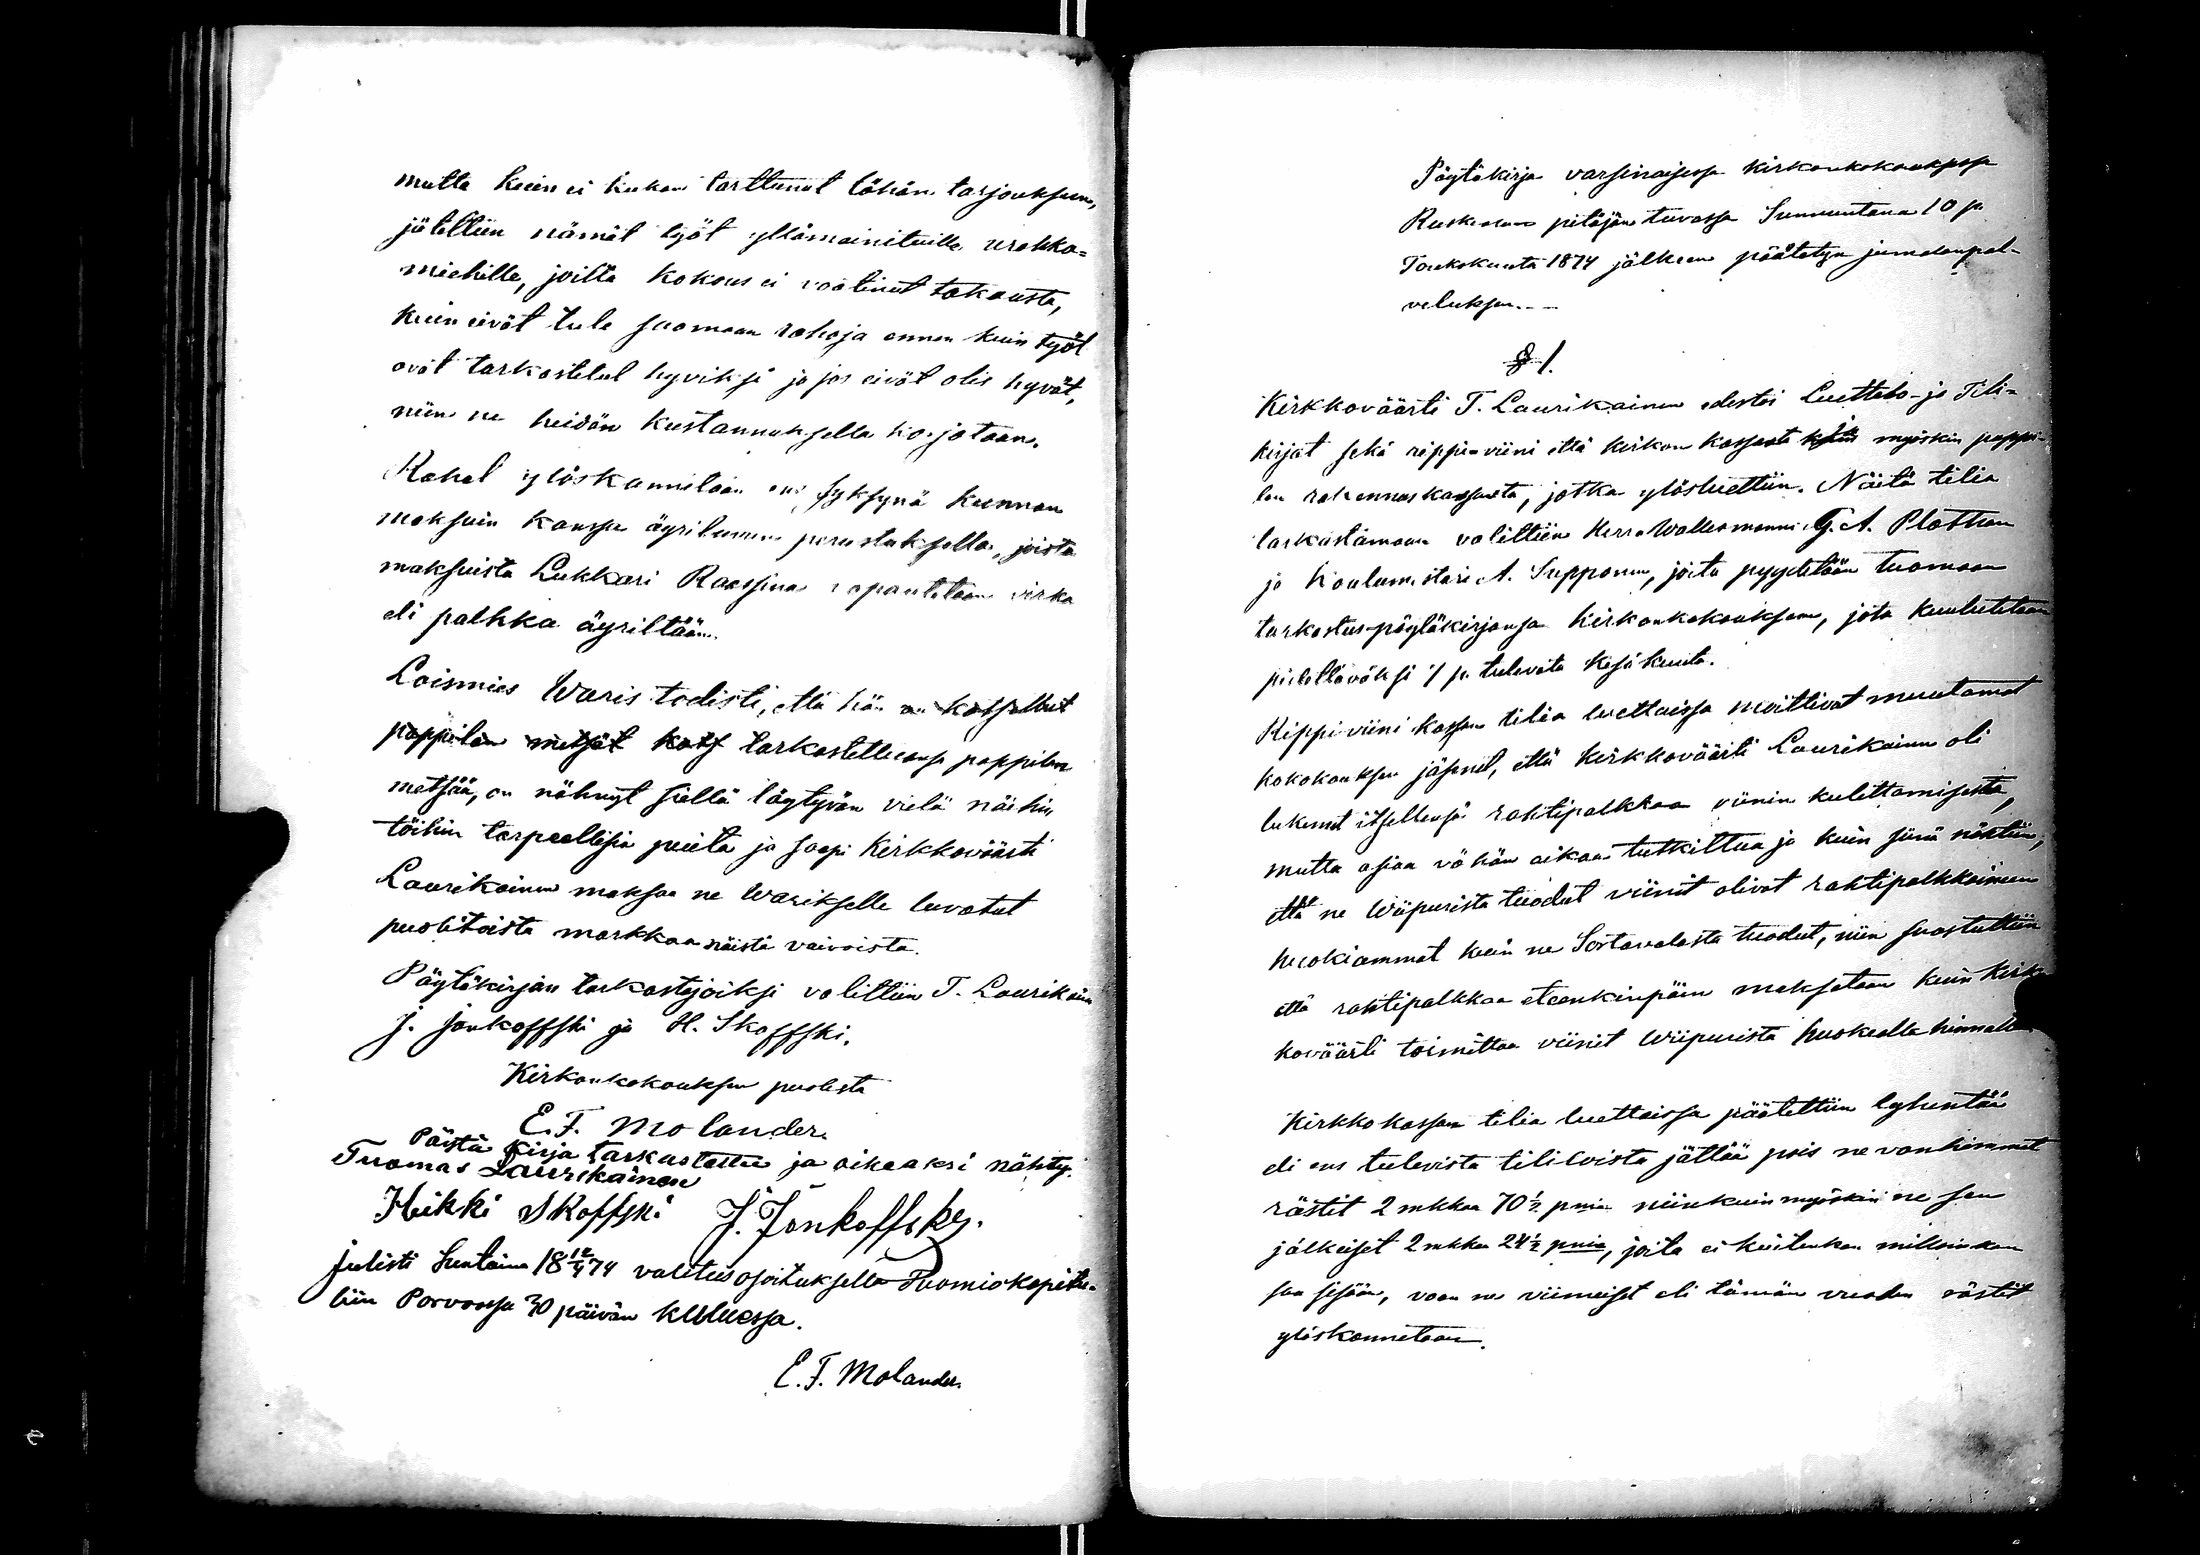 mutta kuin ei kukaan tarttunut tähän tarjouksuun,
jätettiin nämät työt yllämainituille urakka=
miehille, joilta kokous ei vaatinut takausta,
kuin eivät tule saamaan rahoja ennen kuin työt
ovat tarkastetut hyviksi ja jos eivät olis hyvät,
niin ne heidän kustannuksella korjataan.
Rahat ylöskannetaan ens syksynä kunnan
maksuin kanssa äyriluvun perustuksella, joista
maksuista Lukkari Raassina vapautetaan virka
eli palkka äyriltään.
Loismies Waris todisti, että hän on katsellut
pappilan metsät kats tarkastellessansa pappilan
metsää, on nähnyt siellä löytyvän vielä näihin
töihin tarpeellisia puita ja saapi Kirkkoväärti
Laurikainen maksaa ne Warikselle luvatut
puolitoista markkaa näistä vaivoista.
Pöytäkirjan tarkastajoiksi valittiin T. Laurikainen
J. Jonkoffski ja H. Skoffski.
Kirkonkokouksen puolesta
E. F. Molander.
Päytä kirja tarkastettu ja oikeaksi nähty.
Tuomas Laurikainen
Heikki Skoffski J. Jonkoffsky.
Julisti Suntaina 18 12/4 74 valitusosoituksella Tuomiokapitu=
liin Porvoossa 30 päivän kuluessa.
E. F. Molander.
Pöytäkirja varsinaisessa kirkonkokouksessa
Ruskealan pitäjän tuvassa Sunnuntana 10 p.
Toukokuuta 1874 jälkeen päätetyn jumalanpal-
veluksen.--
§ 1.
Kirkkoväärti T. Laurikainen edestoi Luettelo- ja Tili=
kirjat sekä rippi=viini että kirkon kassasta myöskin pappi-
lan rakennuskassasta, jotka ylösluettiin. Näitä tilia
tarkastamaan valittiin Herra Wallesmanni G. A. Plathan
ja Koulumestari A. Supponen, joita pyydetään tuomaan
tarkastus-pöytäkirjansa kirkonkokoukseen, jota kuulutetaan
pidettäväksi p. tulevata kesäkuuta.
Rippiviini kassan tilia luettaissa moittivat muutamat
kokokouksen jäsenet, että kirkkoväärti Laurikainen oli
lukenut itsellensä rahtipalkkaa viinin kulettamisesta,
mutta asiaa vähän aikaa tutkittua ja kuin siinä nähtiin,
että ne Wiipurista tuodut viinit olivat rahtipalkkoineen
huokiammat kuin ne Sortavalasta tuodut, niin suostuttiin
että rahtipalkkaa eteenkinpäin maksetaan kuin Kirk
koväärti toimittaa viinit Wiipurista huokealla hinnalla
Kirkkokassan tilia luettaissa päätettiin lyhentää
eli ens tulevista tililoista jättää pois ne vanhimmat
rästit 2 mkkaa 70½ pniä niinkuin myöskin ne sen
jälkeiset 2 mkkaa 24½ pniä, joita ei kuitenkaan milloinkaan
saa sisään, vaan ne viimeiset eli tämän vuoden rästit
ylöskannetaan.